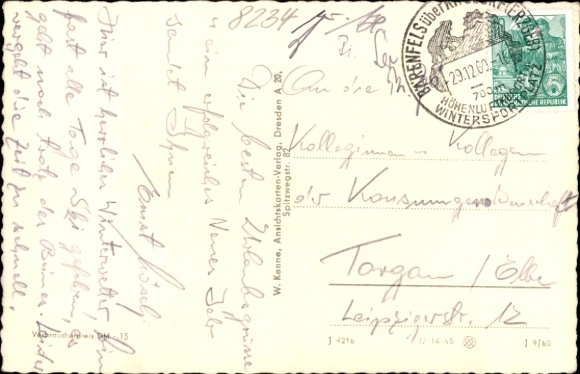 8234
BÄRENFELS über KIPSDORF (ERZGEB)
29.12.60
HÖHENLUFT
WINTERSPORTPLATZ
DEUTSCHE DEMOKRATISCHE REPUBLIK
An die
Kolleginnen u. Kollegen
der Konsumgenossenschaft
Torgau / Elbe
Leipzigerstr. 12
Die besten Urlaubsgrüsse
u. ein erfolgreiches Neues Jahr
sendet Ihnen
Ernst
Hier ist herrliches Winterwetter, bin
fast alle Tage Ski gefahren, es
geht noch trotz des Leider
vergeht die Zeit zu schnell.
W. Kenne, Ansichtskarten-Verlag, Dresden A 20,
Spitzwegstr. 82
Verbraucherpreis DM -.15
J 4216
IV-14-45
J 9/60